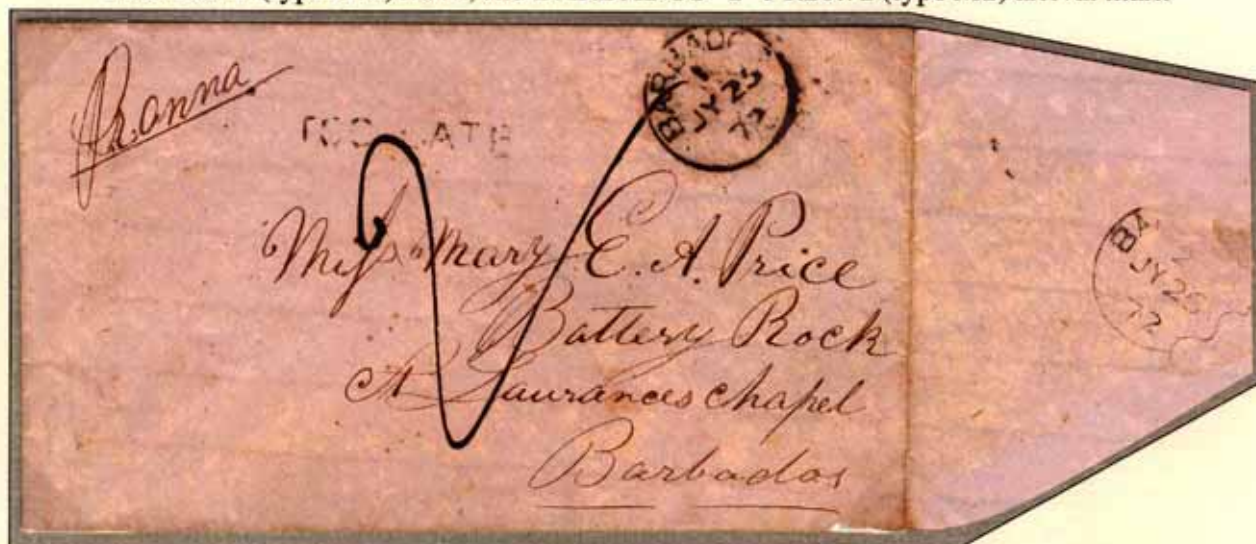 TOO LATE
BARBADOS
1
JY 25
72
Miss Mary E. A. Price
Battery Rock
St Laurances Chapel
Barbados
BA
2
JY 25
72